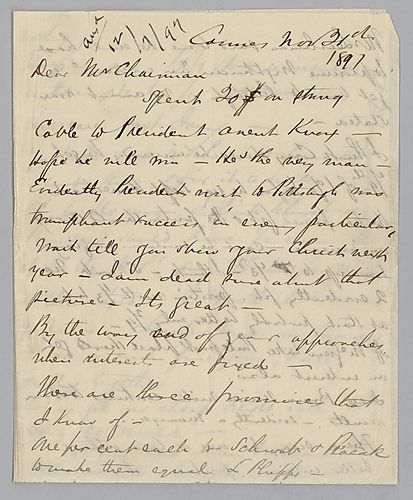 Ansd
12/7/97
Cannes Nov 21st
1897
Dear Mr Chairman
Spent 20 $ on strong
Cable to President anent Knox —
Hope he will win — He's the very man —
Evidently President's visit to Pittsbgh was
triumphant success in every particular,
Wait till you show your Christ next
year — I am dead sure about that
picture — Its great —
By the way, end of year approaches
when interests are fixed —
There are three promises that
I know of —
one per cent each to Schwab & Peacock
to make them equal to Phipps —